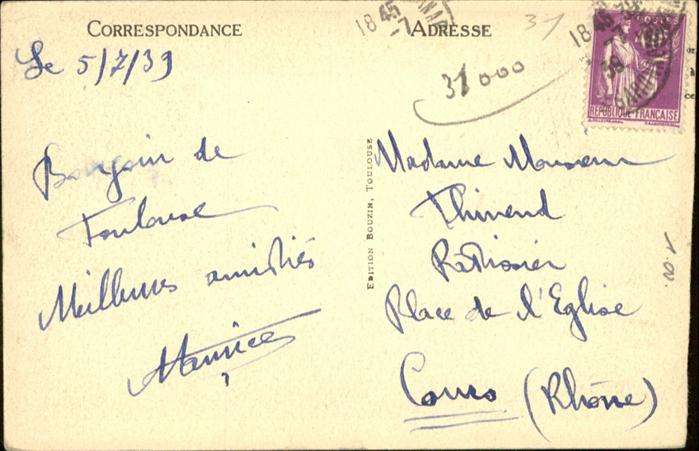 CORRESPONDANCE
Le 5/7/39
Bonjour de
Toulouse
Meilleures amitiés
Maurice
EDITION BOUZIN, TOULOUSE
ADRESSE
31
31000
18 45
-7
18 45
-7
39
RÉPUBLIQUE FRANÇAISE
Madame Monsieur
Thivend
Pâtissier
Place de l'Eglise
Cours (Rhône)
1.00